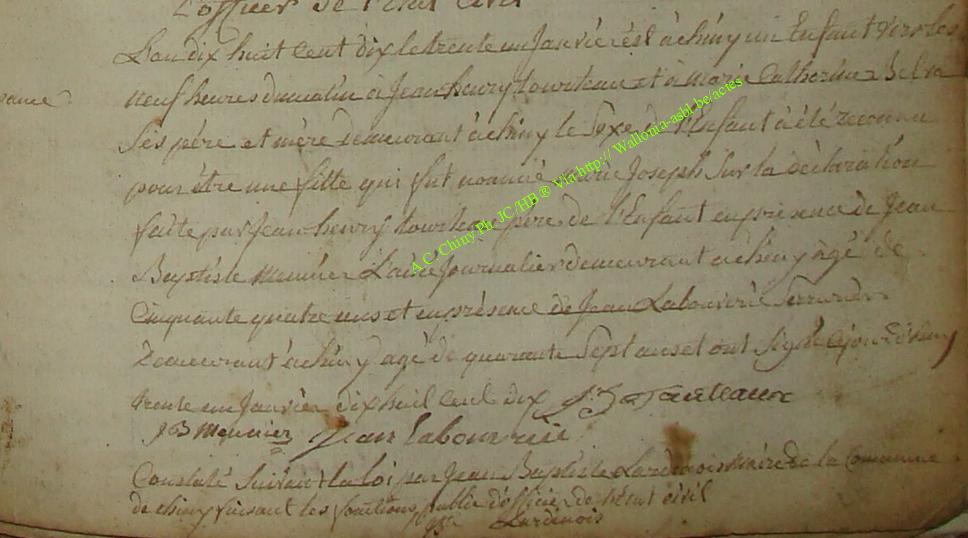 L'officier de l'état civil
L'an dix huit cent dix le trente un Janvier est à chiny un Enfant vers les
neuf heures du matin à Jean henry tourteau et à marie Catherine
Ses père et mère demeurant à chiny le Sexe de l'Enfant à été reconnu
pour être une fille qui fut nommée marie Joseph Sur la déclaration
faite par Jean henry tourteau père de l'Enfant en présence de Jean
Baptiste meunier L'ainé Journalier demeurant à chiny âgé de
Cinquante quatre ans et en présence de Jean Labouverie Serrurier
demeurant à chiny agé de quarante Sept ans et ont Signé
trente un Janvier dix huit cent dix
J B meunier Jean labouverie
Constaté Suivant la loi par Jean Baptiste Lardinois maire de la Commune
de chiny faisant les fonctions public d'officier de l'état civil
Lardinois
A.C. Chiny Ph. JC/HB ® Via http:// Wallonia-asbl.be/actes